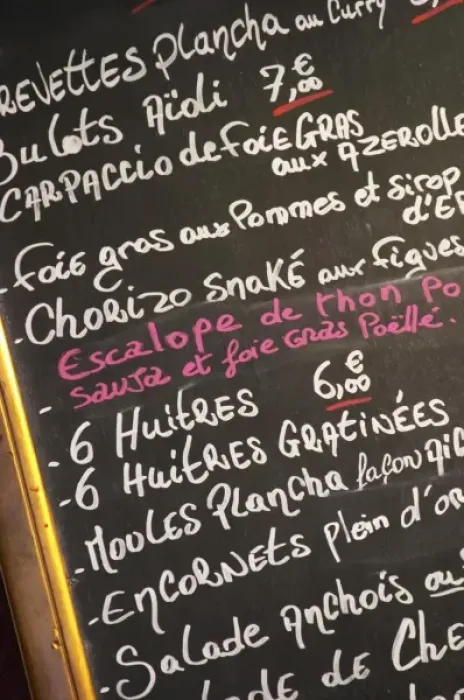 REVETTES Plancha au Curry
Bulots Aïoli 7,00€
CARPACCIO de foie GRAS
aux AZEROLLE
- foie gras aux Pommes et Sirop
d'E
- CHORIZO SNAKÉ aux figues
Escalope de thon Po
- sauja et foie GRAS Poëllé.
- 6 HuitRES 6,00€
- 6 HuitRES GRATINÉES
- MOULES Plancha façon
- ENCORNETS plein d'or
- Salade Anchois au
de DE CHE